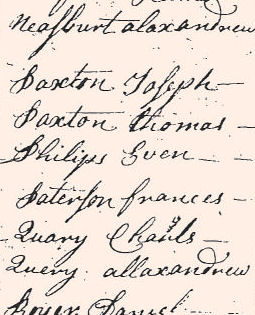 Neasburt alaxandrew
Paxton Joseph
Paxton Thomas
Philips Even
Paterson frances
Quary Charls
Query allaxandrew
Daniel